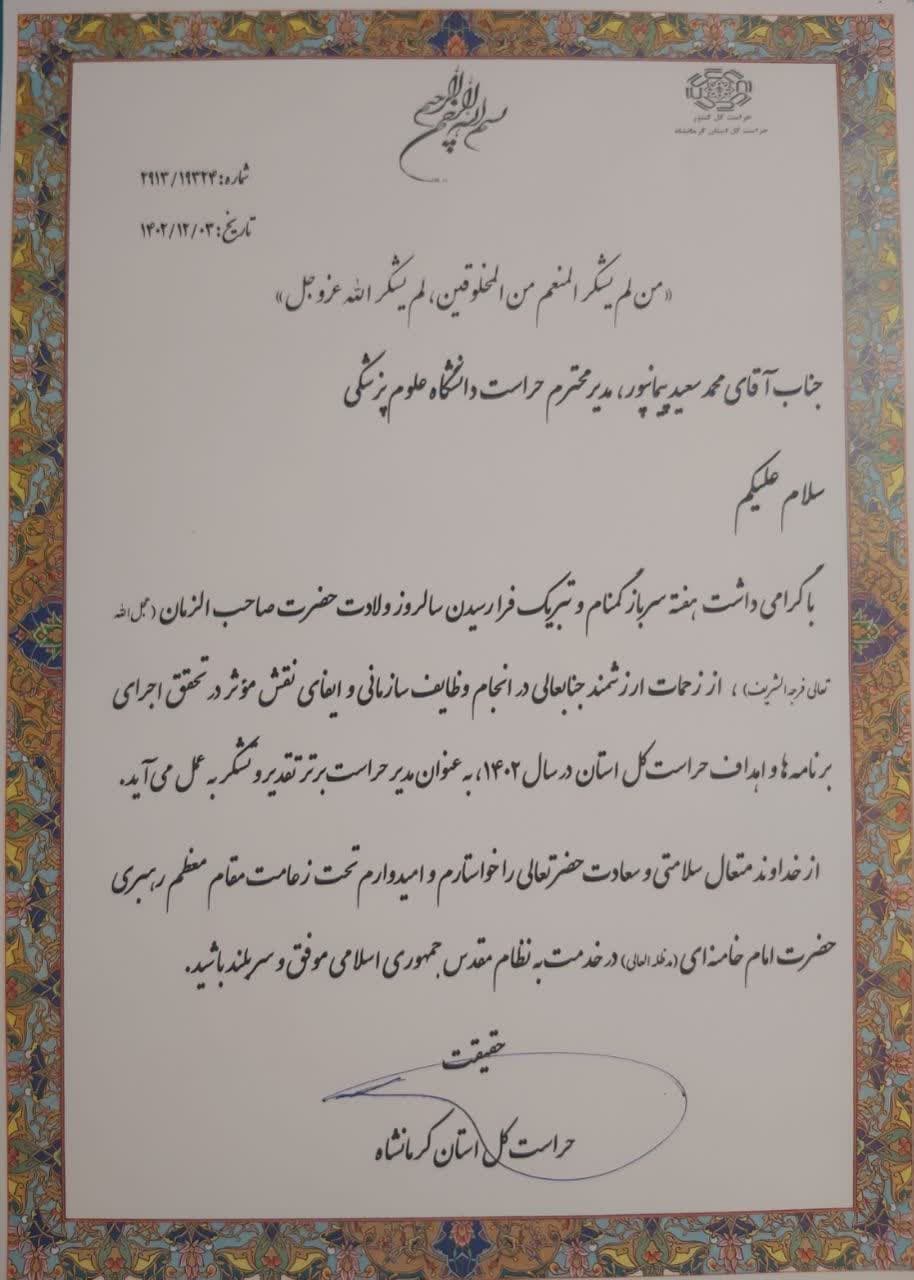 بسم الله الرحمن الرحیم
حراست کل کشور
حراست کل استان کرمانشاه
شماره: ۲۹۱۳/۱۹۳۲۴
تاریخ: ۱۴۰۲/۱۲/۰۳
«من لم یشکر المنعم من المخلوقین، لم یشکر الله عزوجل»
جناب آقای محمد سعید پیمانپور، مدیر محترم حراست دانشگاه علوم پزشکی
سلام علیکم
با گرامی داشت هفته سرباز گمنام و تبریک فرا رسیدن سالروز ولادت حضرت صاحب الزمان (عجل الله
تعالی فرجه الشریف)، از زحمات ارزشمند جنابعالی در انجام وظایف سازمانی و ایفای نقش مؤثر در تحقق اجرای
برنامه ها و اهداف حراست کل استان در سال ۱۴۰۲، به عنوان مدیر حراست برتر تقدیر و تشکر به عمل می آید.
از خداوند متعال سلامتی و سعادت حضرتعالی را خواستارم و امیدوارم تحت زعامت مقام معظم رهبری
حضرت امام خامنه ای (مدظله العالی) در خدمت به نظام مقدس جمهوری اسلامی موفق و سربلند باشید.
حقیقت
حراست کل استان کرمانشاه